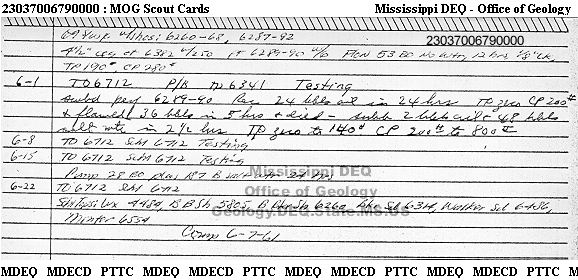 23037006790000 : MOG Scout Cards Mississippi DEQ - Office of Geology
6260-68, 6287-92
23037006790000
4½" csg @ 6382 w/250 pf 6289-90 w/6 Flow 53 BO No wtr, 12 hrs 1/8" ck,
TP 190#, CP 280#
6-1 TD 6712 P/B to 6341 Testing
swbd perf 6289-90 Rec 24 bbls oil in 24 hrs TP zero CP 200#
& flowed 36 bbls in 5 hrs & died - swab 2 bbls oil & 48 bbls
salt wtr in 2 1/2 hrs TP zero to 140# CP 200# to 800#
6-8 TD 6712 Schl 6712 Testing
6-15 TD 6712 Schl 6712 Testing
Pump 28 BO plus 187 B
6-22 TD 6712 Schl 6712
4484, B 5805, B 6260, 6314, Walker Sd 6486,
Minter 6554
Comp 6-7-61
Mississippi DEQ
Office of Geology
Geology.DEQ.State.MS.US
MDEQ MDECD PTTC MDEQ MDECD PTTC MDEQ MDECD PTTC MDEQ MDECD PTTC MDEQ